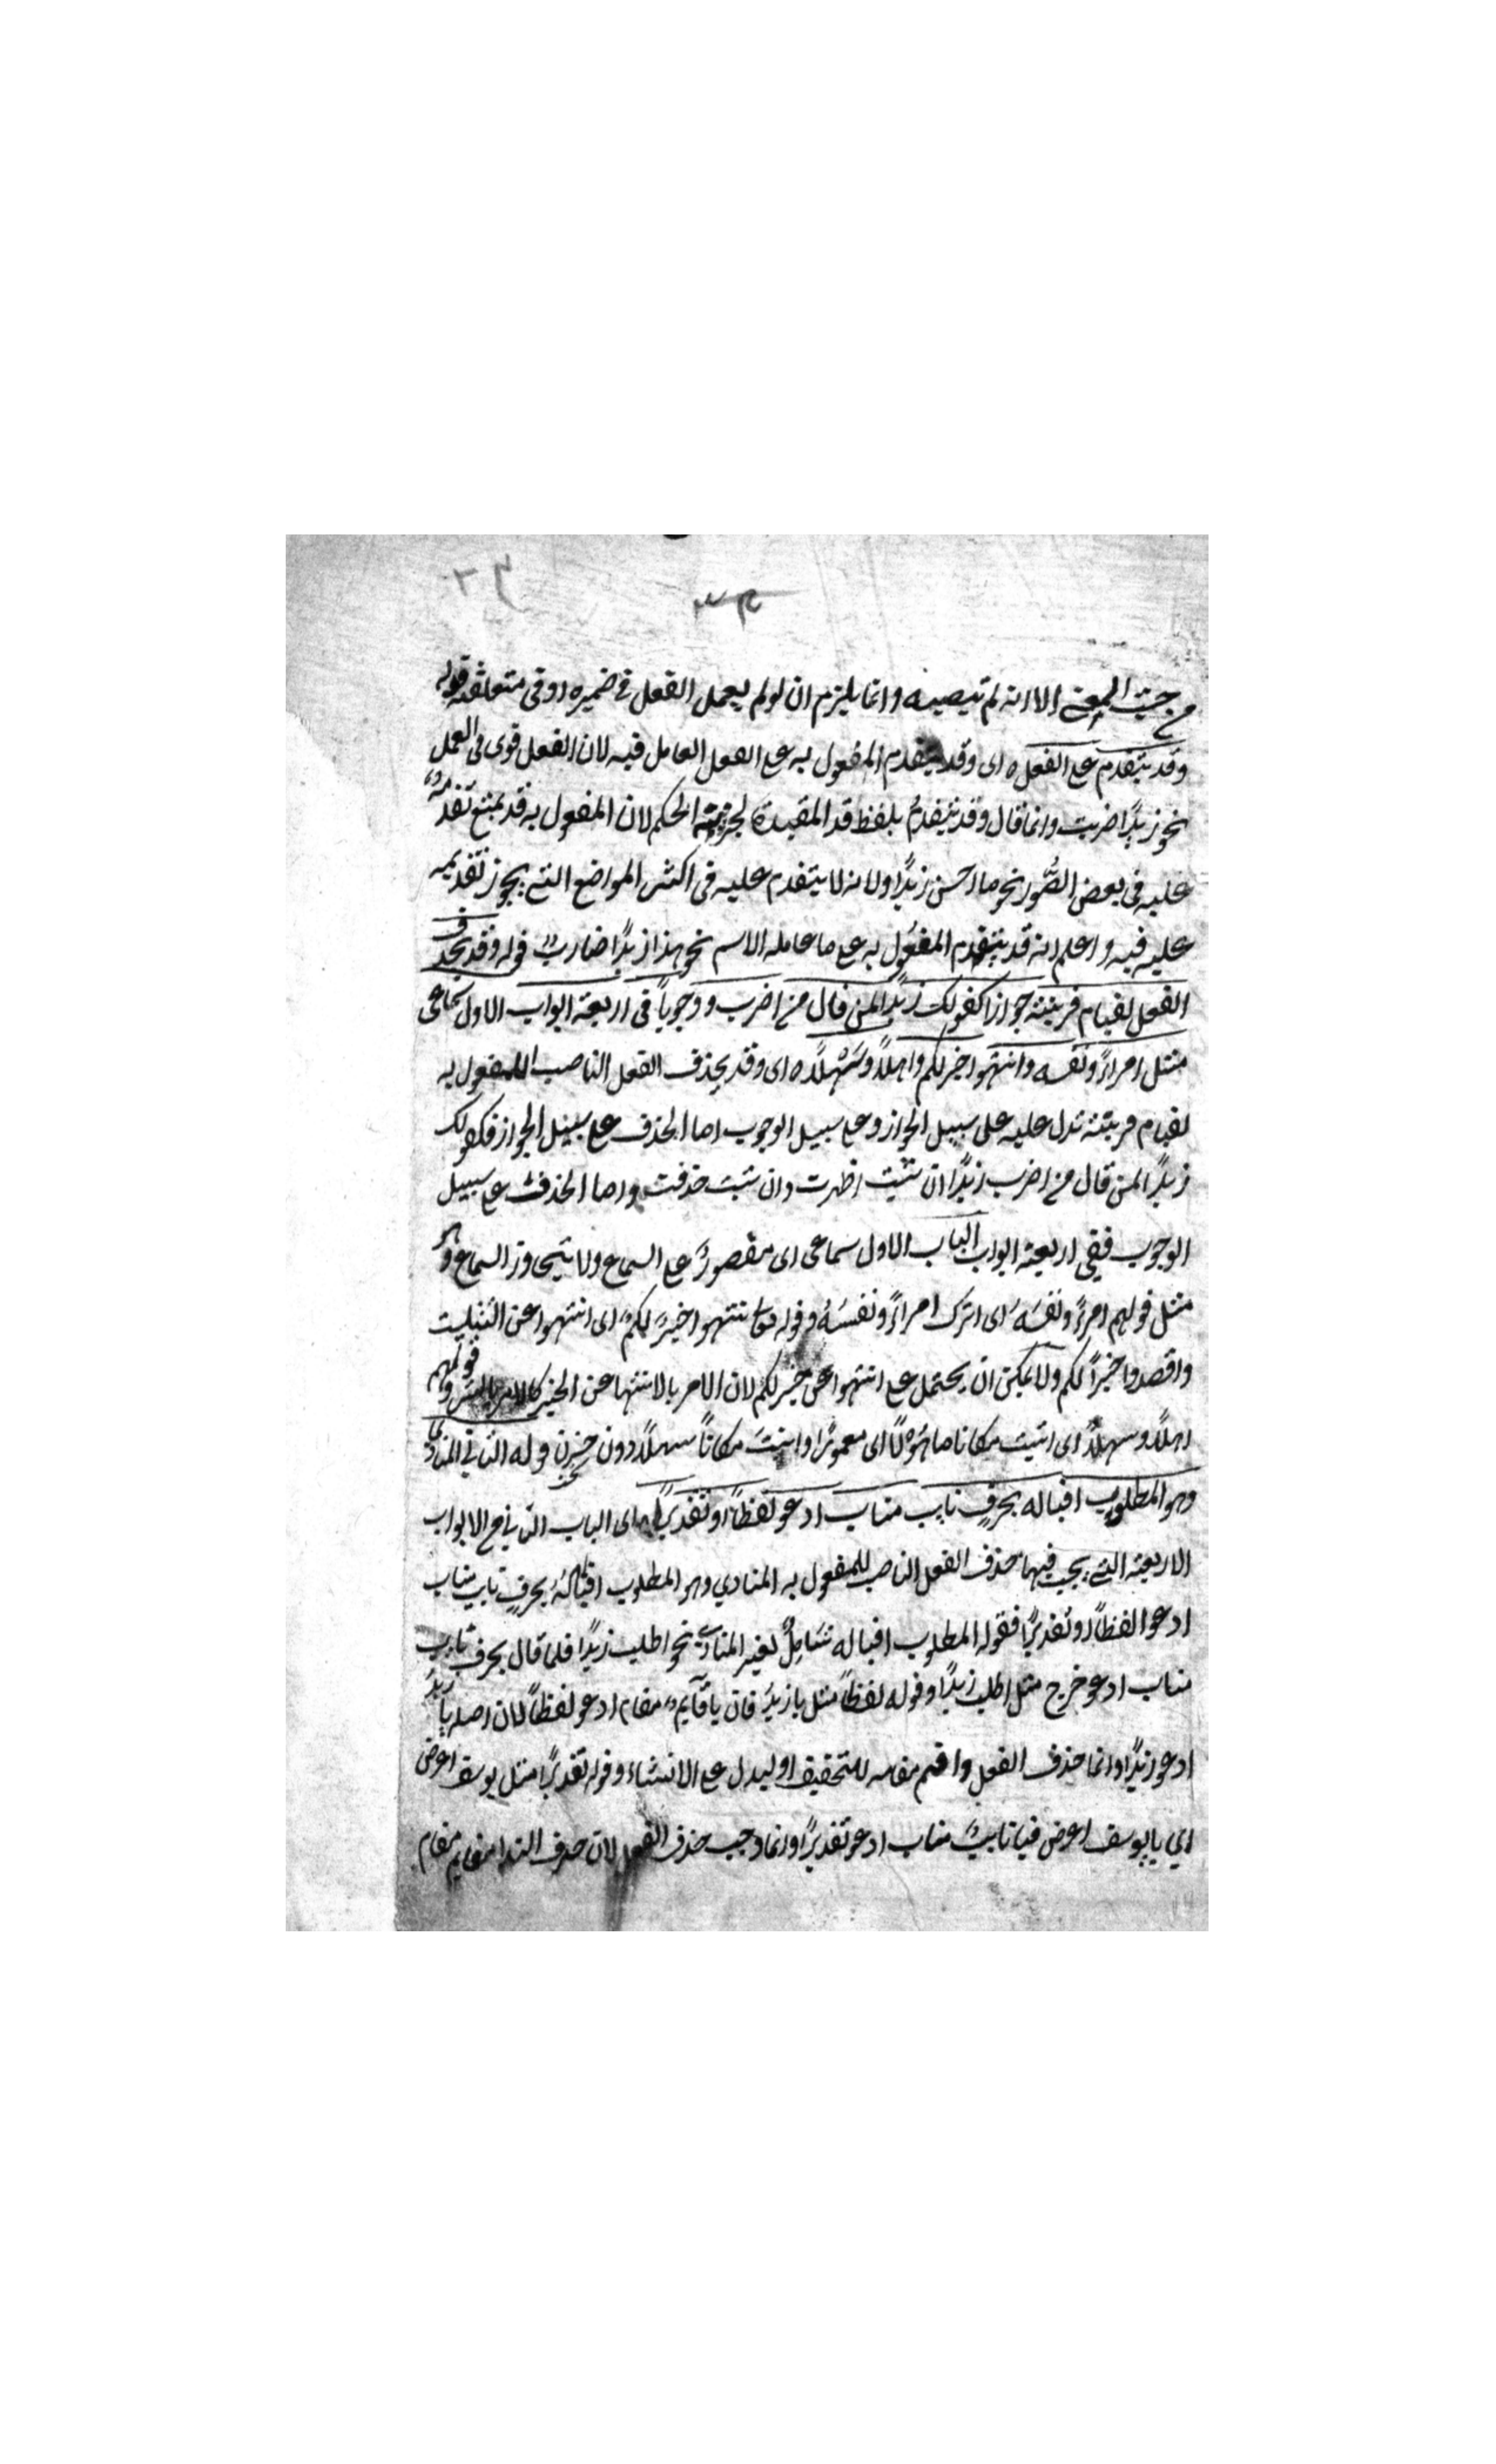 من حيث المعنى الا انه لم تيصيبه وانما يلزم ان لو لم يعمل الفعل فى ضميره او فى متعلقه قوله
وقد يتقدم على الفعل ه اى وقد يتقدم المفعول به على الفعل العامل فيه لان الفعل قوى فى العمل
نحو زيدًا ضربت وانما قال وقد يتقدمُ بلفظ قد المقيدة لجزئية الحكم لان المفعول به قد يمتنع تقدمه
عليه فى بعض الصُّور نحو ما احسن زيدًا ولانه لا يتقدم عليه فى اكثر المواضع التى يجوز تقديمه
عليه فيه واعلم انه قد يتقدم المفعُول به على ما عامله الاسم نحو هذا زيدًا ضاربٌ قوله وقد يحذف
الفعل لقيام قرينة جوازا كقولك زيدًا لمن قال من اضرب ووجوباً فى اربعة ابواب الاول سماعى
مثل امراءً ونفسه وانتهوا خيرلكم واهلاً وسَهْلاً ه اى وقد يحذف الفعل الناصب للمفعول به
لقيام قرينة تدل عليه على سبيل الجواز وعلى سبيل الوجوب اما الحذف على سبيل الجواز فكقولك
زيدًا لمن قال من اضرب زيدًا ان شئت اظهرت وان شئت حذفت واما الحذف على سبيل
الوجوب ففى اربعة ابواب الباب الاول سماعى اى مقصورٌ على السماع ولا يتجاوز السماع وهو
مثل قولهم امرءً ونفسَهُ اى اترك امراءً ونفسَهُ وقوله تعالى انتهوا خيرً لكم اى انتهوا عن التثليث
واقصدوا خيرًا لكم ولا يمكن ان يحتمل على انتهوا عن خير لكم لان الامر بالانتها عن الخير كالامر بالشر وقولهم
اهلاً وسهلاً اى اتيت مكانا ماهُوْلًا اى معمورًا واتيتَ مكاناً سهلاً دون حَزِنٍ قوله الثانى المنادى
وهو المطلوب اقباله بحرفٍ نايب مناب ادعو لفظاً او تقديرًا ه اى الباب الثانى من الابواب
الاربعة التى يجب فيها حذف الفعل الناصب للمفعول به المنادي وهو المطلوب اقبالهُ بحرفٍ نايب مناب
ادعو لفظاً او تقديرًا فقوله المطلوب اقباله شَامِلٌ لغير المنادى نحو اطلب زيدًا فلما قال بحرف نايب
مناب ادعو خرج مثل اطلب زيدًا وقوله لفظاً مثل يا زيدُ فان يا قآيم مقام ادعو لفظاً لان اصله يا زيدُ
ادعو زيدًا وانما حذف الفعل واقيم مقامه للتحقيق او ليدل على الانشاء وقوله تقديرًا مثل يوسف اعرض
اي يا يوسف اعرض فيا نايبٌ مناب ادعو تقديرًا وانما وجب حذف الفعل لان حرف الندا قايم مقام